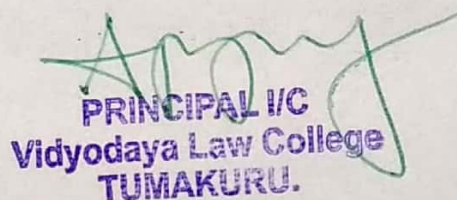 PRINCIPAL I/C
Vidyodaya Law College
TUMAKURU.